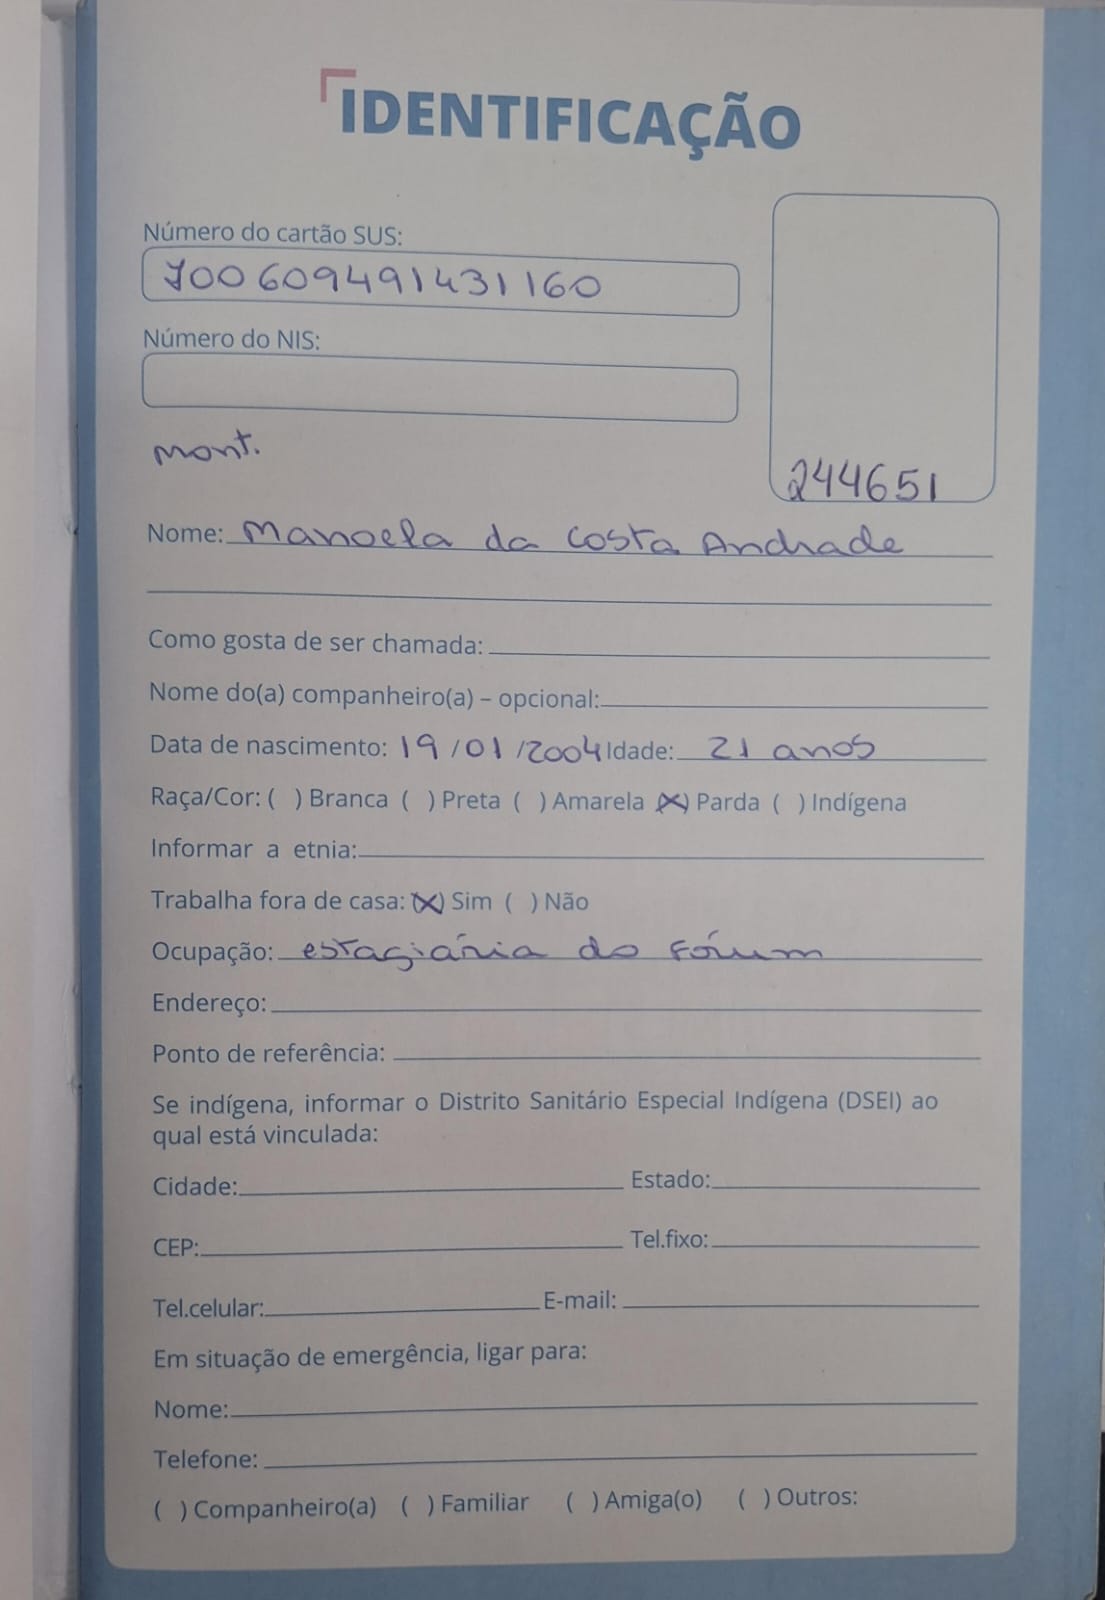 IDENTIFICAÇÃO
Número do cartão SUS:
700609491431160
Número do NIS:
mont.
244651
Nome: Manoela da Costa Andrade
Como gosta de ser chamada:
Nome do(a) companheiro(a) – opcional:
Data de nascimento: 19/01/2004 Idade: 21 anos
Raça/Cor: ( ) Branca ( ) Preta ( ) Amarela (X) Parda ( ) Indígena
Informar a etnia:
Trabalha fora de casa: (X) Sim ( ) Não
Ocupação: estagiária do Fórum
Endereço:
Ponto de referência:
Se indígena, informar o Distrito Sanitário Especial Indígena (DSEI) ao
qual está vinculada:
Cidade: Estado:
CEP: Tel.fixo:
Tel.celular: E-mail:
Em situação de emergência, ligar para:
Nome:
Telefone:
( ) Companheiro(a) ( ) Familiar ( ) Amiga(o) ( ) Outros: